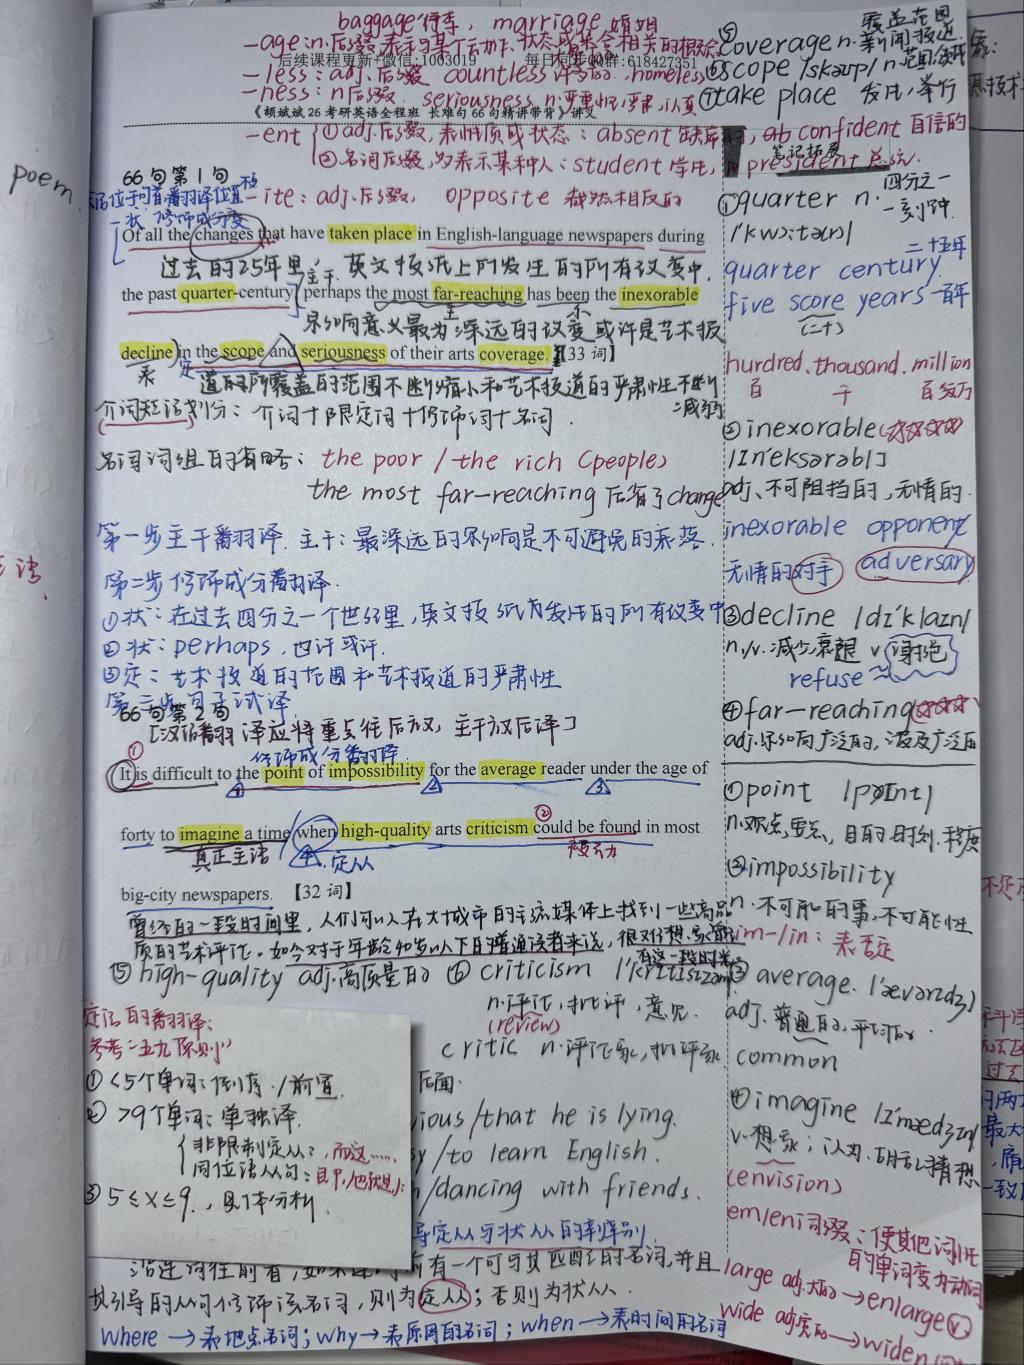 baggage 行李, marriage 婚姻
-age: n.后缀 表示与某个动作、状态或集合相关的概念
后续课程更新+微信: 1003019 每日同步QQ群: 618427351
-less: adj.后缀 countless 许多的. homeless
-ness: n后缀. seriousness n.严重性, 严肃, 认真
《颉斌斌 26 考研英语全程班 长难句 66 句精讲带背》讲义
-ent ①adj.后缀, 表性质或状态: absent 缺席的, confident 自信的
②名词后缀, 为表示某种人: student 学生, president 总统.
66 句第 1 句
-ite: adj.后缀, opposite 截然相反的
状 修饰成分变
Of all the changes that have taken place in English-language newspapers during
过去的25年里, 英文报纸上所发生的所有改变中,
主干
the past quarter-century, perhaps the most far-reaching has been the inexorable
影响意义最为深远的改变或许是艺术报
decline in the scope and seriousness of their arts coverage. 【33 词】
表 定
道的所覆盖的范围不断缩小和艺术报道的严肃性不断
减弱
介词短语划分: 介词+限定词+修饰词+名词.
名词词组的省略: the poor / the rich (people)
the most far-reaching 后省了change
第一步主干翻译. 主干: 最深远的影响是不可避免的衰落.
第二步 修饰成分翻译.
①状: 在过去四分之一个世纪里, 英文报纸内发生的所有改变中
②状: perhaps, 也许 或许.
③定: 艺术报道的范围和艺术报道的严肃性
第三步 句子试译
66 句第 2 句
[汉语翻译应将重点往后放, 主干放后译]
修饰成分翻译
It is difficult to the point of impossibility for the average reader under the age of
forty to imagine a time when high-quality arts criticism could be found in most
真正主语 定从 被动
big-city newspapers. 【32 词】
曾经的一段时间里, 人们可以在大城市的主流媒体上找到一些高品
质的艺术评论. 如今对于年龄40岁以下的普通读者来说, 很难想象
有这一段时光
⑤high-quality adj.高质量的 ⑥criticism
n.评论, 批评, 意见.
(review)
critic n.评论家, 批评家
定语的翻译:
参考“五九原则”
①<5个单词: 倒序/前置.
②>9个单词: 单独译.
非限制定从: 而这……
同位语从句: 即, 也就是:
③5≤x≤9, 具体分析.
后面.
/that he is lying.
/to learn English.
/dancing with friends.
定从与状从的判别
有一个可与其匹配的名词, 并且
引导的从句修饰该名词, 则为定从; 否则为状从.
where → 表地点名词; why → 表原因的名词; when → 表时间的名词
覆盖范围
⑤coverage n. 新闻报道
⑥scope /skəʊp/ n.范围
⑦take place 发生, 举行
笔记拓展
①quarter n. 四分之一
一刻钟.
/ˈkwɔːtə(r)/
二十五年
quarter century
five score years 一百年
(二十)
hundred. thousand. million
百 千 百万
②inexorable
/ɪnˈeksərəbl/
adj.不可阻挡的, 无情的.
inexorable opponent/
无情的对手 adversary
③decline /dɪˈklaɪn/
n./v. 减少, 衰退 v 谢绝
refuse
④far-reaching
adj.影响广泛的, 波及广泛的
①point /pɔɪnt/
n.观点, 重点, 目的, 时刻. 程度
②impossibility
n. 不可能的事, 不可能性
im-/in: 表否定
③average. /ˈævərɪdʒ/
adj. 普通的, 平均的.
common
④imagine /ɪˈmædʒɪn/
v.想象; 认为. 胡乱猜想
(envision)
em/en词缀: 使其他词性
的单词变为动词
large adj.大的 → enlarge v.
wide adj.宽的 → widen
poem